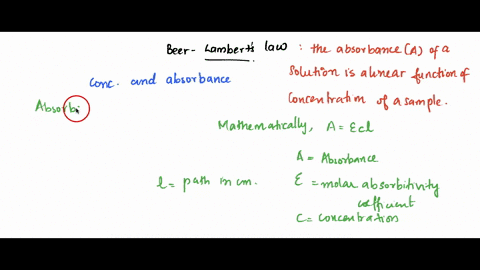 Beer-Lambert's law : the absorbance (A) of a
solution is a linear function of
concentration of a sample.
conc. and absorbance
Absorb
Mathematically, A = Ɛcl
A = Absorbance
l = path in cm.
Ɛ = molar absorbitivity
coefficient
C = concentration